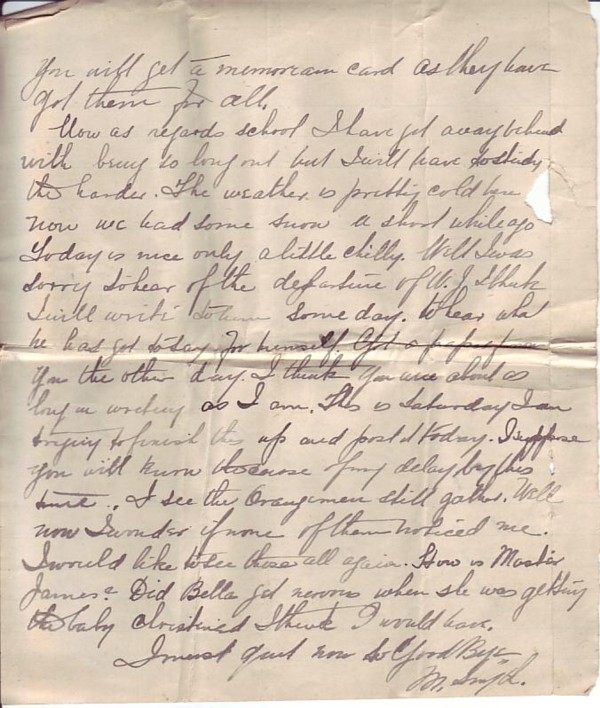 You will get a memoream card as they have
got them for all.
Now as regards school I have got away behind
with being so long out but I will have to study
the harder. The weather is pretty cold here
now we had some snow a short while ago
Today is nice only a little chilly. Well I was
sorry to hear of the departure of W. J. I think
I will write to him some day. to hear what
he has got to say for himself. Got a paper from
you the other day. I think you are about as
long in writing as I am. This is Saturday I am
trying to finish this up and post it today. I suppose
you will know the cause of my delay by this
time. I see the Orangemen still gather. Well
now I wonder if none of them noticed me.
I would like to see them all again. How is Master
James? Did Bella get nervous when she was getting
the baby christined I think I would have.
I must quit now so Good Bye
M.